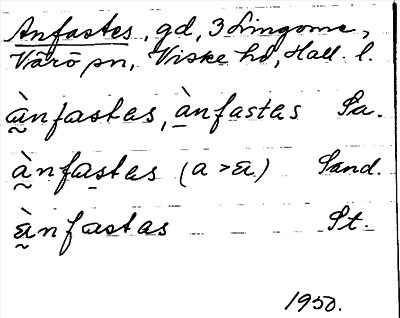 Anfastes, gd, 3 Lingome,
Värö sn, Viske hd, Hall. l.
a̰̍nfastas, ànfastas Sa.
à̰nfa̱stas (a > a) Sand.
à̰nfastas St.
1950.